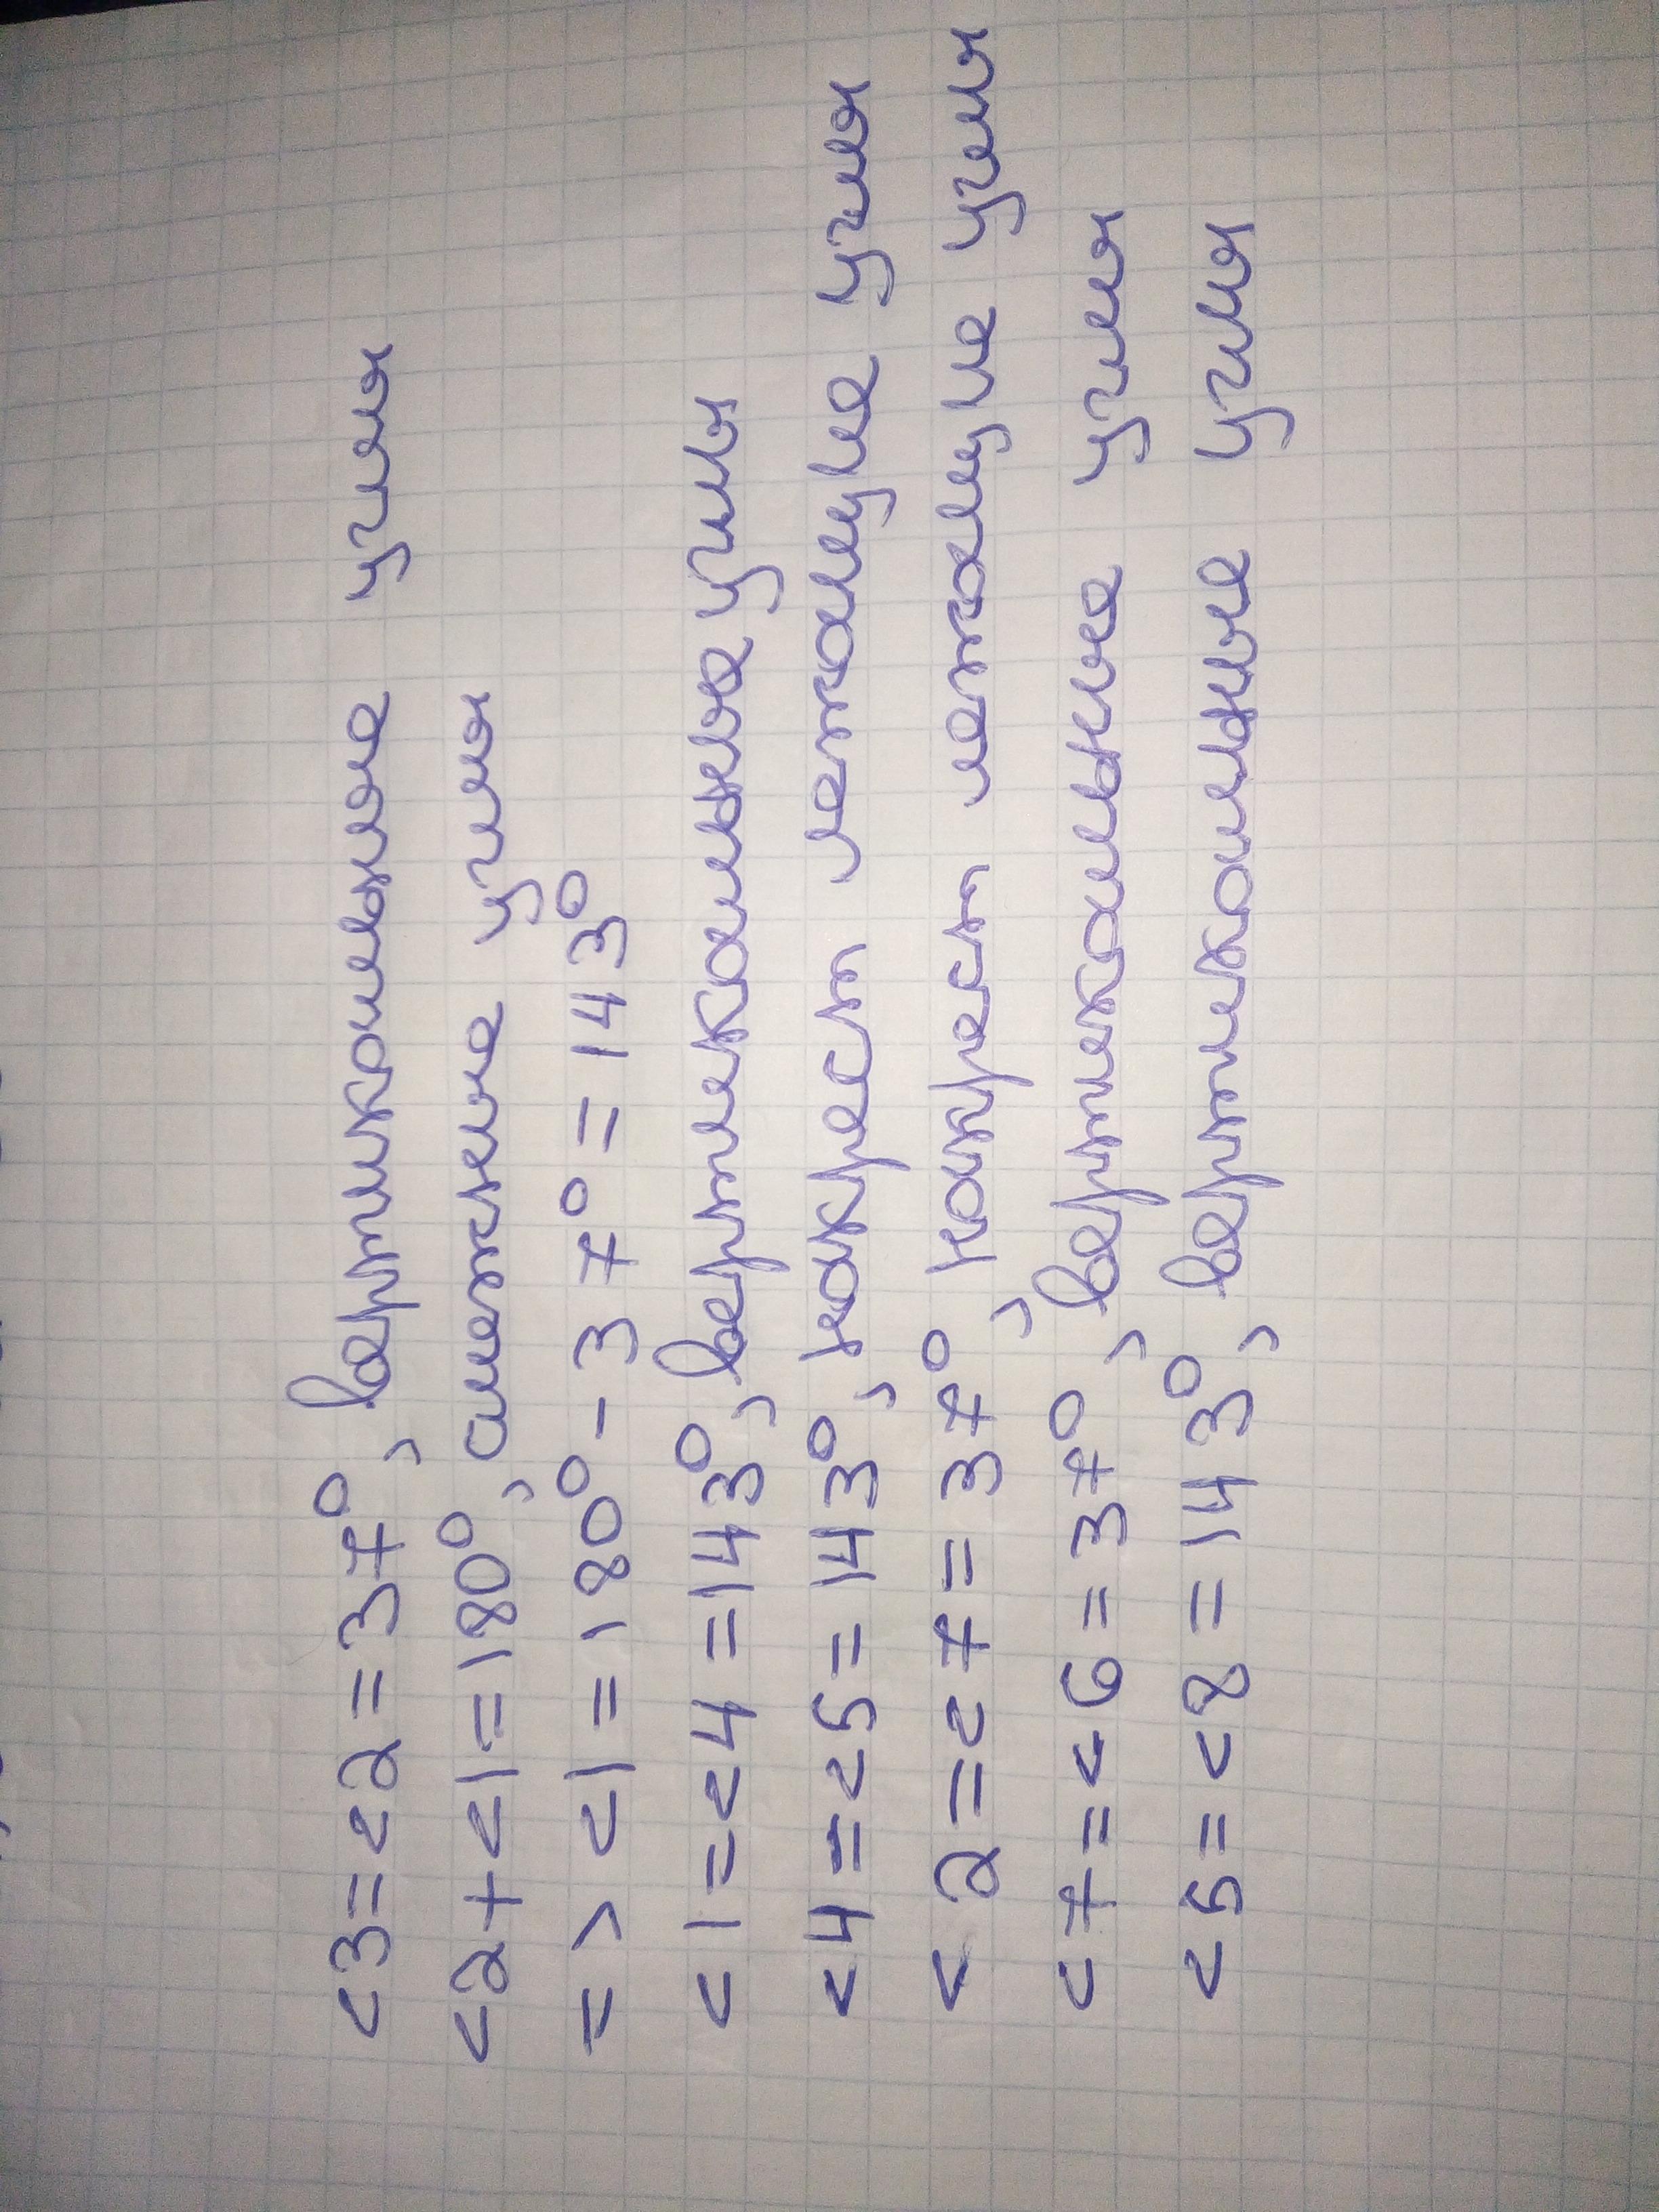 <3=<2=37°, вертикальные углы
<2+<1=180°, смежные углы
=> <1=180°-37°=143°
<1=<4=143°, вертикальные углы
<4=<5=143°, накрест лежащие углы
<2=<7=37°, накрест лежащие углы
<7=<6=37°, вертикальные углы
<5=<8=143°, вертикальные углы